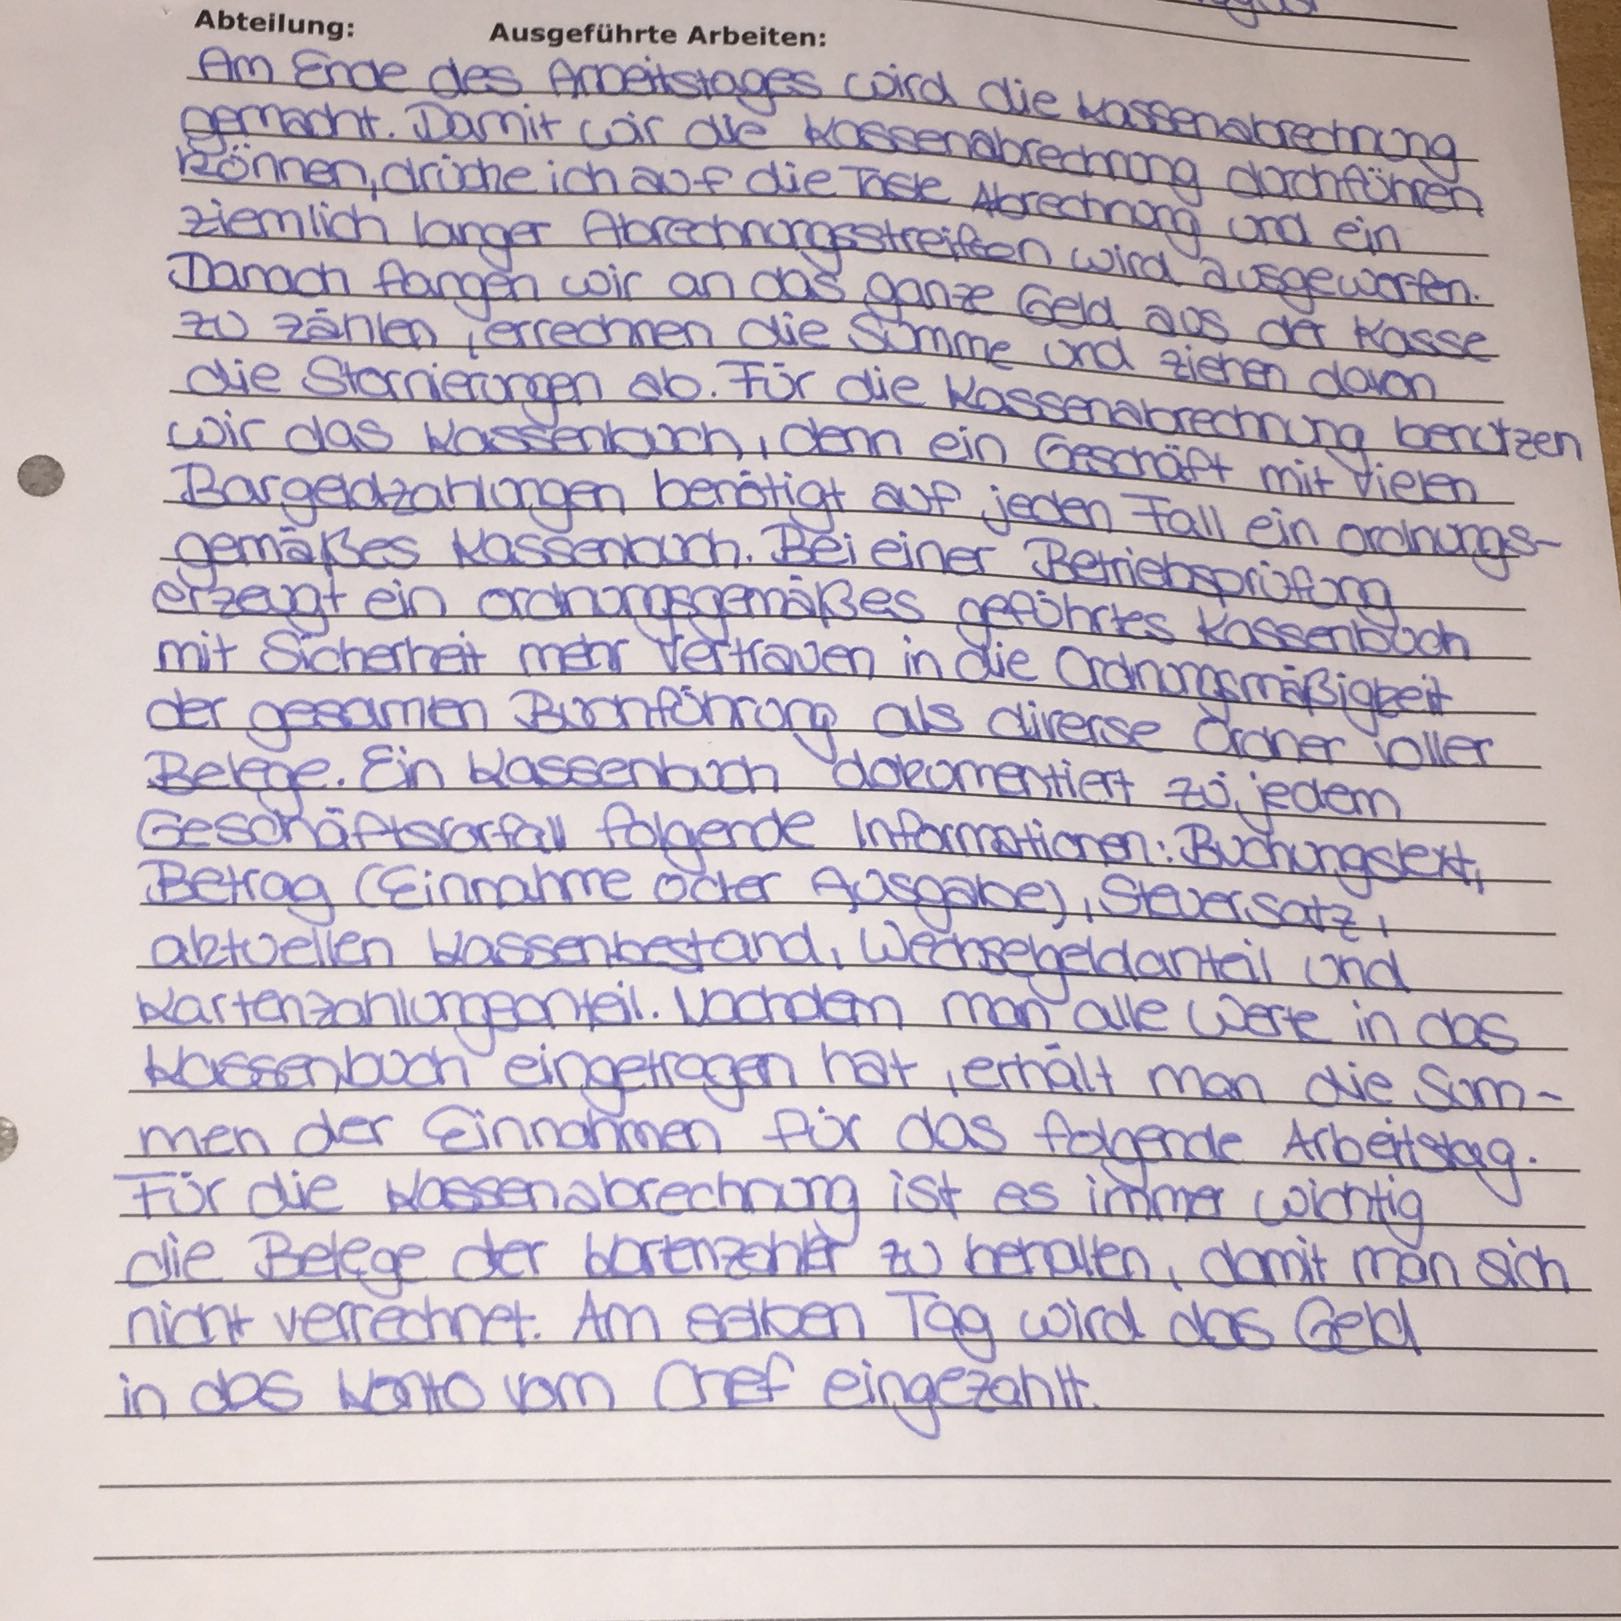 Abteilung: Ausgeführte Arbeiten:
Am Ende des Arbeitstages wird die Kassenabrechnung
gemacht. Damit wir die Kassenabrechnung durchführen
können, drücke ich auf die Taste Abrechnung und ein
ziemlich langer Abrechnungsstreiffen wird ausgeworfen.
Danach fangen wir an das ganze Geld aus der Kasse
zu zählen, errechnen die Summe und ziehen davon
die Stornierungen ab. Für die Kassenabrechnung benutzen
wir das Kassenbuch, denn ein Geschäft mit vielen
Bargeldzahlungen benötigt auf jeden Fall ein ordnungs-
gemäßes Kassenbuch. Bei einer Betriebsprüfung
erzeugt ein ordnungsgemäßes geführtes Kassenbuch
mit Sicherheit mehr Vertrauen in die Ordnungsmäßigkeit
der gesamen Buchführung als diverse Ordner voller
Belege. Ein Kassenbuch dokumentiert zu jedem
Geschäftsvorfall folgende Informationen: Buchungstext,
Betrag (Einnahme oder Ausgabe), Steuersatz,
aktuellen Kassenbestand, Wechselgeldanteil und
Kartenzahlungsanteil. Nachdem man alle Werte in das
Kassenbuch eingetragen hat, erhält man die Sum-
men der Einnahmen für das folgende Arbeitstag.
Für die Kassenabrechnung ist es immer wichtig
die Belege der Kartenzahler zu behalten, damit man sich
nicht verrechnet. Am selben Tag wird das Geld
in das Konto vom Chef eingezahlt.